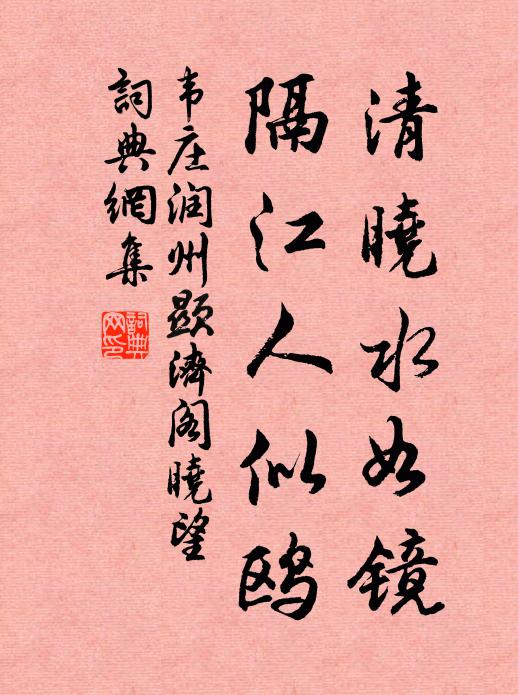 清曉水如鏡
隔江人似鸥
韦庄润州显濟阁曉望
詞典網集
詞典
网印